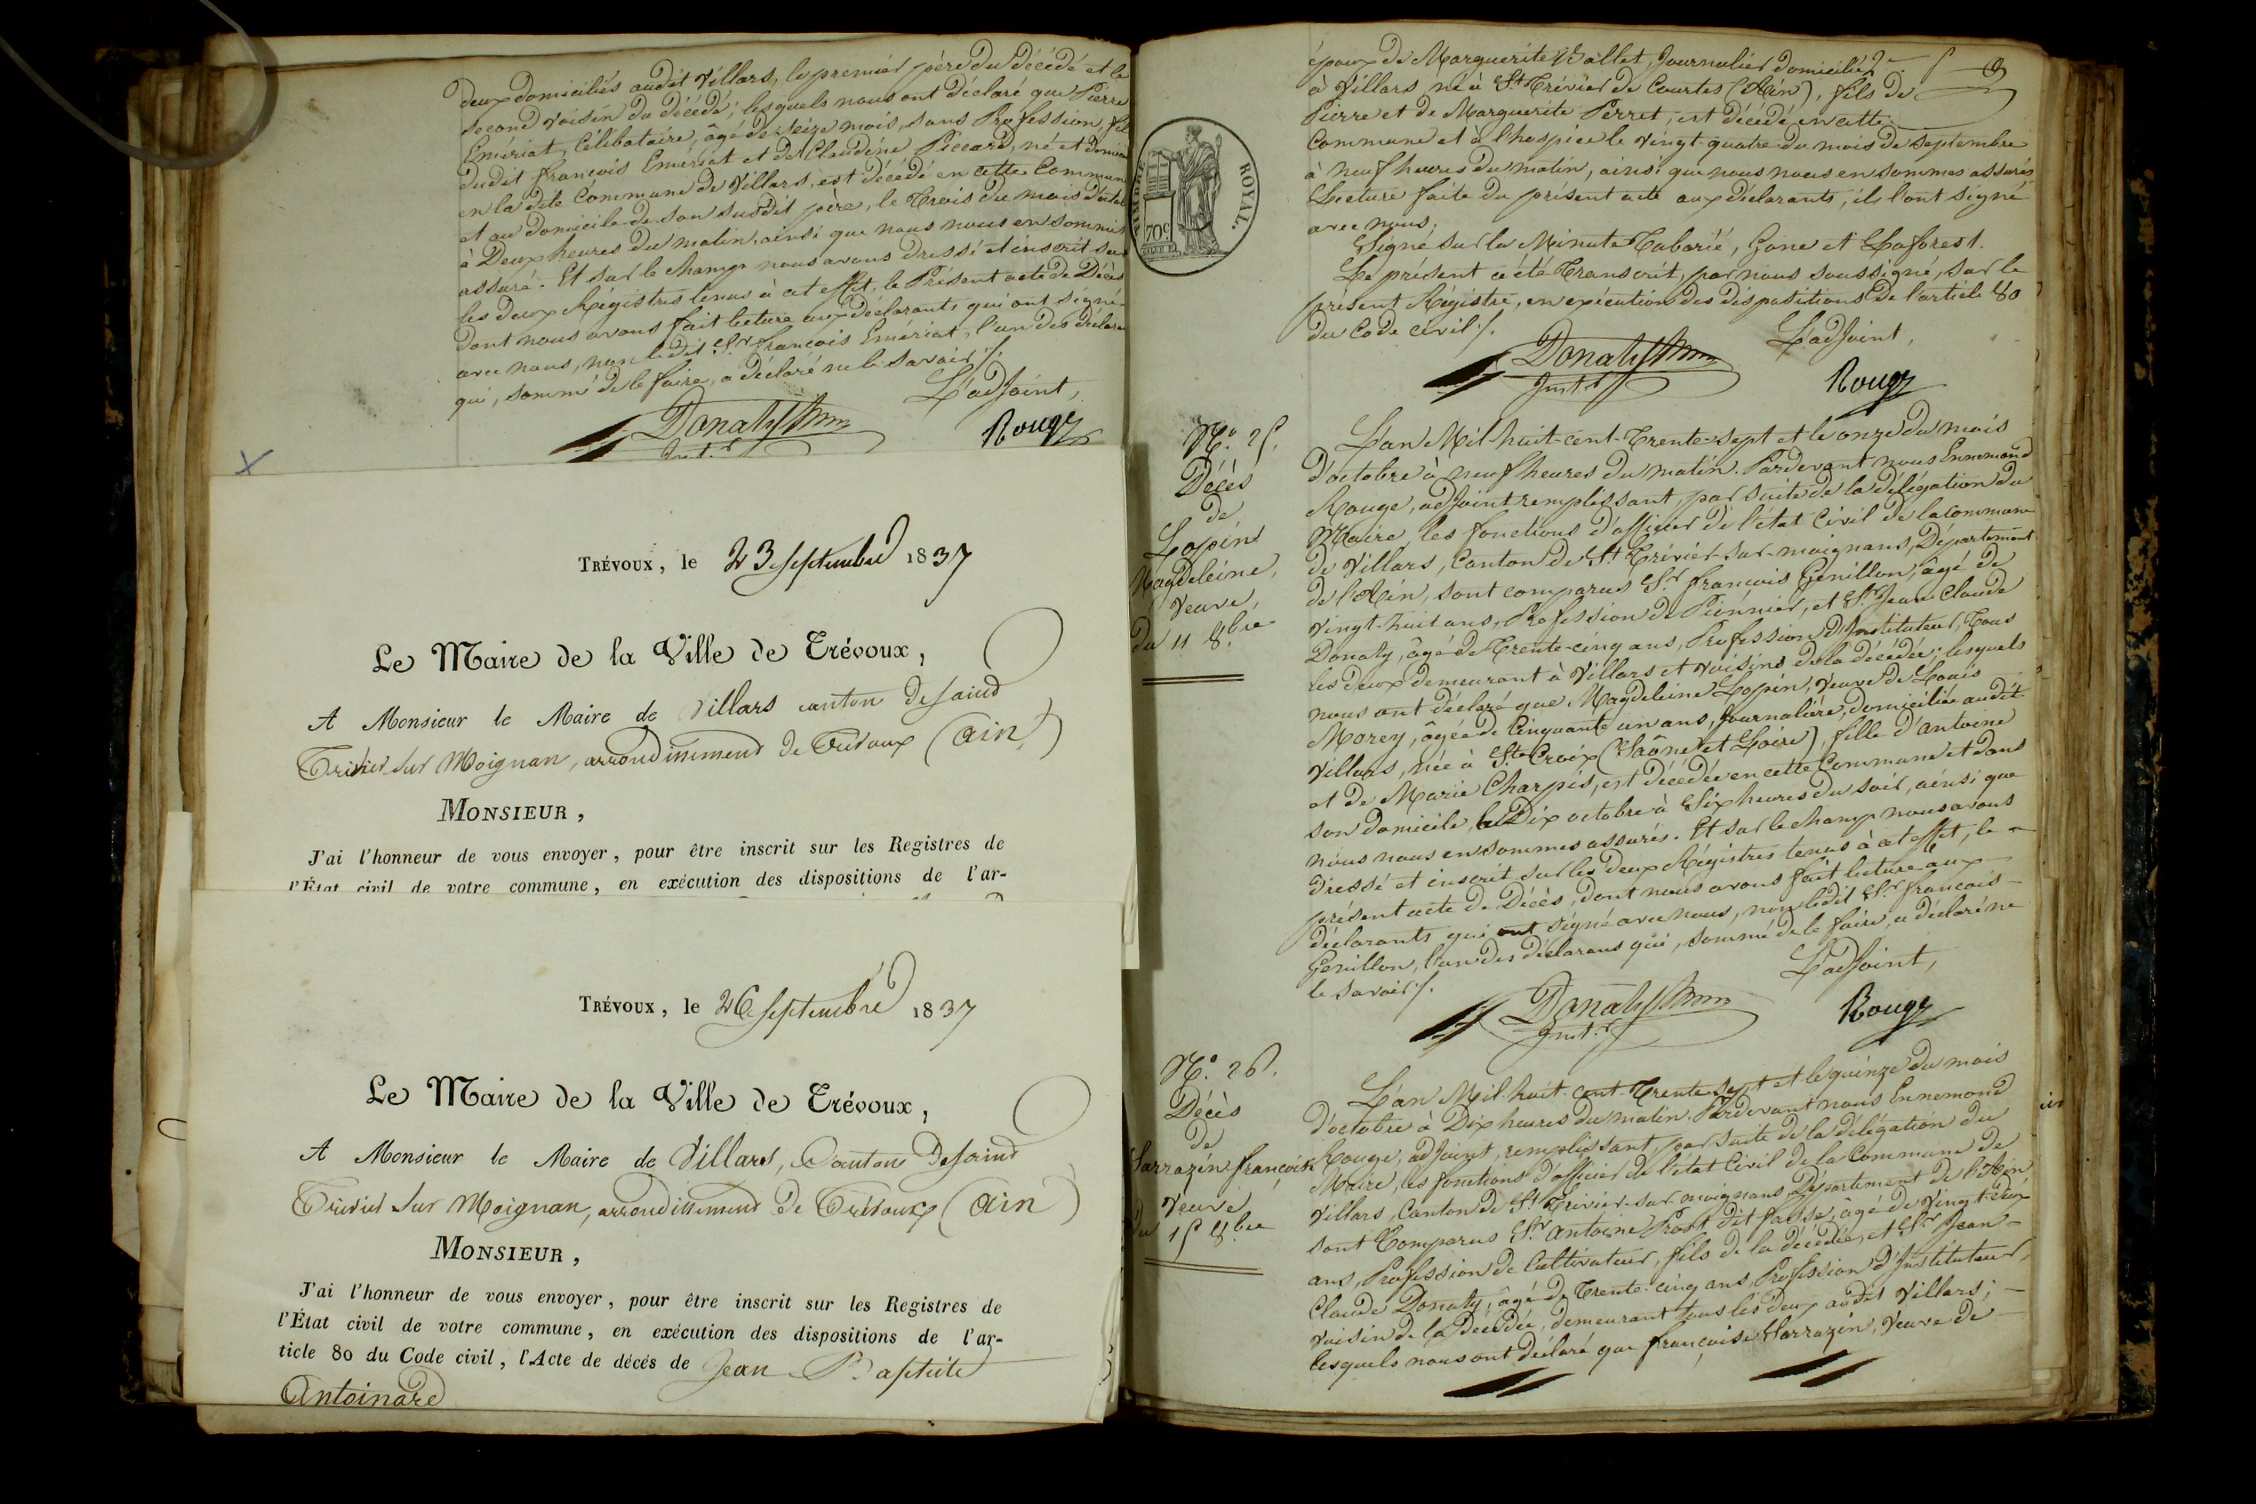 deux domiciliés audit Villars, le premier père du décédé et le
second voisin du décédé; lesquels nous ont déclaré que Pierre
Emériat, Célibataire, âgé de seize mois, sans Profession, fils
dudit françois Emériat et de Claudine Piccard, né et domicilié
en la dite Commune de Villars, est décédé en cette Commune
et au domicile de son susdit père, le Trois du mois d'octobre
à Deux heures du matin, ainsi que nous nous en sommes
assuré. Et sur le champ nous avons dressé et inscrit sur
les deux Régistres tenus à cet effet, le Présent acte de Décès
dont nous avons fait lecture aux déclarants qui ont signé
avec nous, non ledit Sr. françois Emériat, l'un des déclarants
qui, sommé de le faire, a déclaré ne le savoir ./.
L'adjoint,
Donaty
Inst.r
Rouge
TRÉVOUX, le 23 septembre 1837
Le Maire de la Ville de Trévoux,
A Monsieur le Maire de Villars canton de saint
Trivier sur Moignan, arrondissement de Trévoux (ain)
MONSIEUR,
J'ai l'honneur de vous envoyer, pour être inscrit sur les Registres de
l'État civil de votre commune, en exécution des dispositions de l'ar-
TRÉVOUX, le 26 septembre 1837
Le Maire de la Ville de Trévoux,
A Monsieur le Maire de Villars, Canton de saint
Trivier sur Moignan, arrondissement de Trévoux (ain)
MONSIEUR,
J'ai l'honneur de vous envoyer, pour être inscrit sur les Registres de
l'État civil de votre commune, en exécution des dispositions de l'ar-
ticle 80 du Code civil, l'Acte de décés de Jean Baptiste
Antoinard
TIMBRE ROYAL.
70c
époux de Marguerite Ballet, Journalier domicilié
à Villars, né à St. Trévier de Courtes (Ain), fils de
Pierre et de Marguerite Perret, est décédé en cette
Commune et à l'hospice le vingt-quatre du mois de septembre
à neuf heures du matin, ainsi que nous nous en sommes assurés
Lecture faite du présent acte aux déclarants, ils l'ont signé
avec nous,
Signé sur la Minute Cabarié, Gone et Laforest.
Le présent a été Transcrit, par nous soussigné, sur le
présent Régistre, en exécution des dispositions de l'article 80
du Code civil ./.
L'adjoint,
Donaty
Inst.r
Rouge
N.o 25.
Décès
de
Lopin
Magdeleine,
Veuve,
du 11 8.bre
L'an Mil-huit-cent-Trente-sept et le onze du mois
d'octobre à neuf heures du matin. Pardevant nous Ennemond
Rouge, adjoint remplissant, par suite de la délégation du
Maire, les fonctions d'officier de l'état Civil de la commune
de Villars, Canton de St. Trévier-sur-moignans, Département
de l'Ain, sont comparus Sr. françois Genillon, âgé de
vingt-huit ans, Profession de Pionnier, et Sr. Jean-Claude
Donaty, âgé de Trente-cinq ans, Profession d'Instituteur, Tous
les deux demeurant à Villars et voisins de la décédée; lesquels
nous ont déclaré que Magdeleine Lopin, Veuve de Louis
Morey, âgée de Cinquante un ans, Journalière, domiciliée audit
Villars, née à Ste. Croix (Saône et Loire), fille d'antoine
et de Marie Charpis, est décédée en cette Commune et dans
son domicile, le Dix octobre à Six heures du soir, ainsi que
nous nous en sommes assurés. Et sur le champ nous avons
dressé et inscrit sur les deux Régistres tenus à cet effet, le
présent acte de Décès, dont nous avons fait lecture aux
déclarants qui ont signé avec nous, non ledit Sr. françois
Genillon, l'un des déclarans qui, sommé de le faire, a déclaré ne
le savoir ./.
L'adjoint,
Donaty
Inst.r
Rouge
N.o 26.
Décès
de
Sarrazin françoise
Veuve
du 15 8.bre
L'an Mil-huit-cent-Trente-sept et le quinze du mois
d'octobre à Dix heures du matin. Pardevant nous Ennemond
Rouge, adjoint, remplissant par suite de la délégation du
Maire, les fonctions d'officier de l'état Civil de la Commune de
Villars, Canton de St. Trivier-sur-moignans, Département de l'Ain
sont Comparus Sr. antoine Prost dit fausse, âgé de vingt-deux
ans, Profession de Cultivateur, fils de la décédée, et Sr. Jean-
Claude Donaty, âgé de Trente-cinq ans, Profession d'Instituteur,
voisin de la décédée, demeurant tous les deux audit Villars;
lesquels nous ont déclaré que françoise Sarrazin, Veuve de